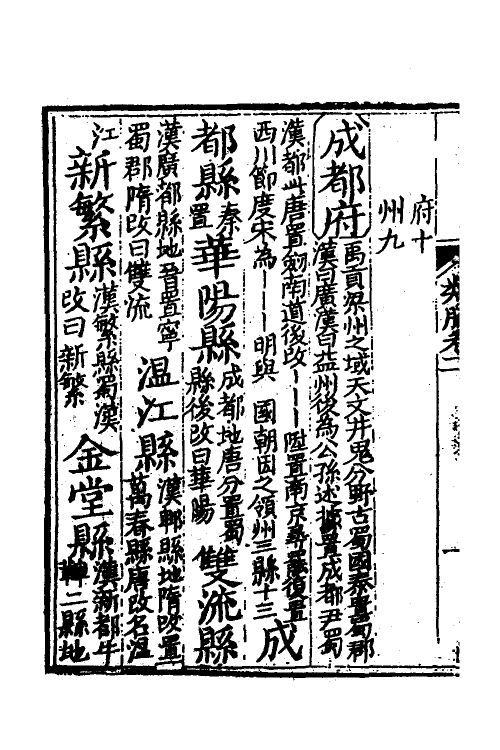 府十
州九
成都府 禹貢梁州之域天文井鬼分野古蜀國秦置蜀郡
漢曰廣漢曰益州後為公孫述據置成都尹蜀
漢都此唐置劔南道後改———陞置南京尋罷復置
西川節度宋為——明與 國朝因之領州三縣十三 成
都縣 秦置 華陽縣 成都地唐分置蜀
縣後改曰華陽 雙流縣
漢廣都縣地晉置寧
蜀郡隋改曰雙流 温江縣 漢郫縣地隋改置
萬春縣唐改名温
江 新繁縣 漢繁縣蜀漢
改曰新繁 金堂縣 漢新都牛
鞞二縣地